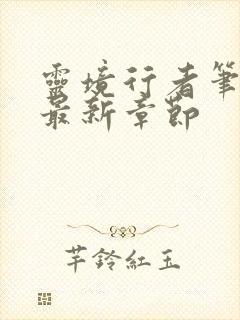 靈境行者筆
最新章節
芊鈴紅玉